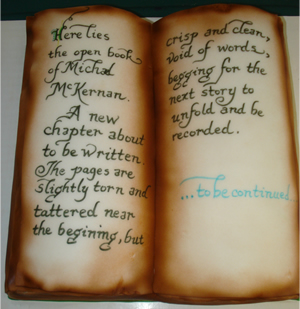 Here lies
the open book
of Michal
McKernan.
A new
chapter about
to be written.
The pages are
slightly torn and
tattered near
the begining, but
crisp and clean,
void of words,
begging for the
next story to
unfold and be
recorded.
...to be continued